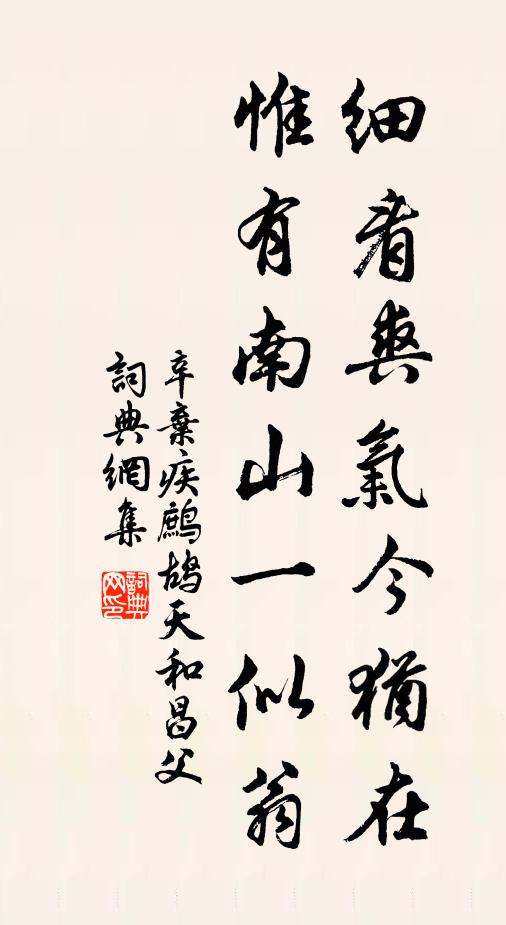 細看爽氣今猶在
惟有南山一似翁
辛棄疾鷓鴣天和昌父
詞典網集
詞典网印